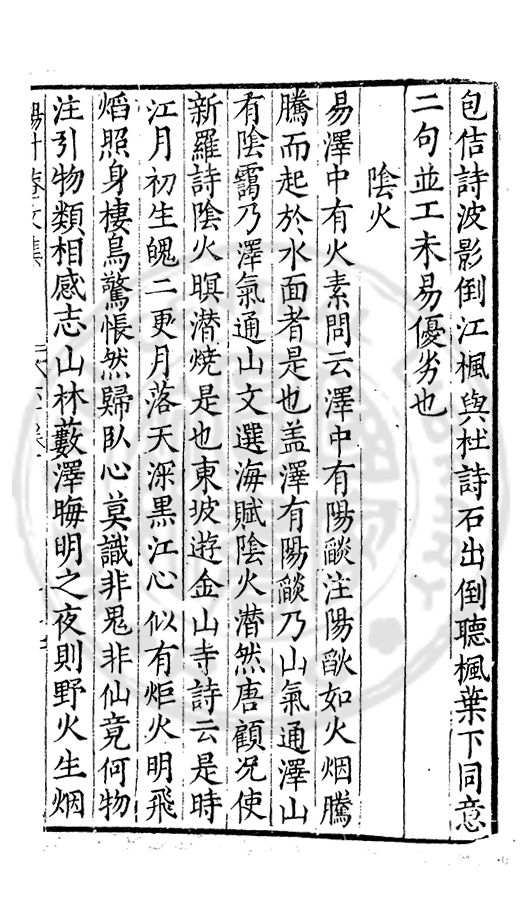 包佶詩波影倒江楓與杜詩石出倒聽楓葉下同意
二句並工未易優劣也
陰火
易澤中有火素問云澤中有陽燄注陽燄如火烟騰
騰而起於水面者是也盖澤有陽燄乃山氣通澤山
有陰靄乃澤氣通山文選海賦陰火潛然唐顧况使
新羅詩陰火暝潜燒是也東坡遊金山寺詩云是時
江月初生魄二更月落天深黒江心似有炬火明飛
熖照身棲鳥驚悵然歸臥心莫識非鬼非仙竟何物
注引物類相感志山林藪澤晦明之夜則野火生烟